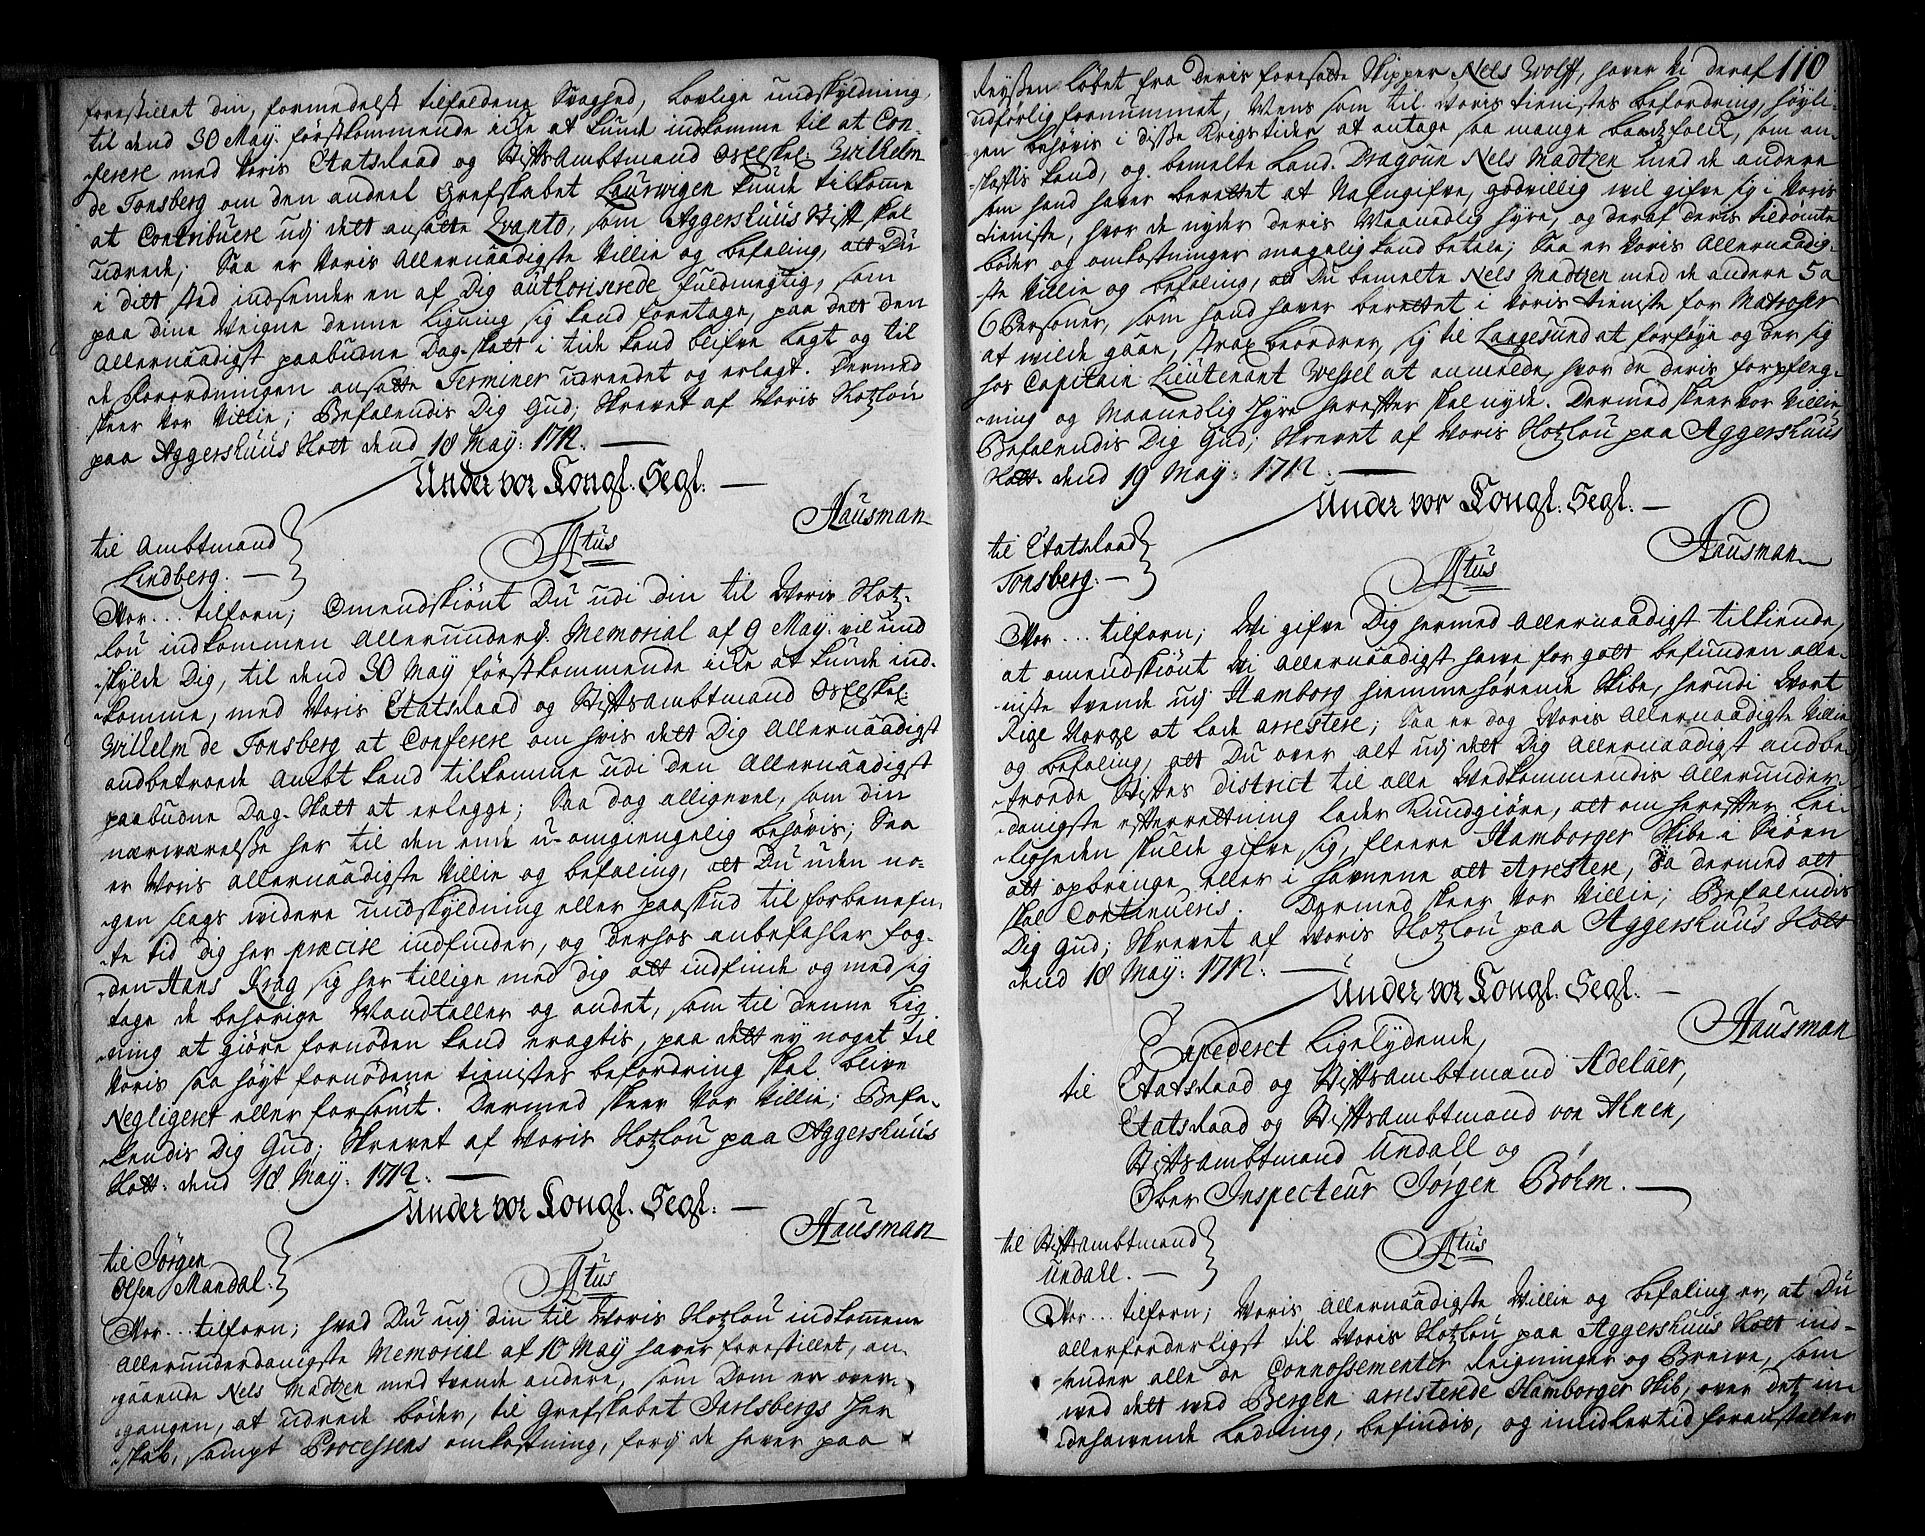 forestillet din, formedelst tilfaldene Svaghed, lovlige undskyldning,
til dend 30 May. förstkommende icke at kunde indkomme til at Con-
ferere med Voris Etatsraad og Stiftsambtmand Os Elskel. Wilhelm
de Tonsberg om den andeel Grefskabet Laurwigen kunde tilkomme
at Contribuere udj dett ansatte Qvanto, som Aggershuus Stift skal
udrede; Saa er Voris Allernaadigste Villie og befaling, att Du
i ditt sted indsender en af Dig authoriserede fuldmegtig, som
paa dine Veigne denne Ligning sig kand foretage, paa dett den
Allernaadigst paabudne Dag-skatt i tide kand blifve lagt og til
de forordningen ansatte Terminer udreedet og erlagt. Dermed
skeer Vor Villie; Befalendis Dig Gud; Skrevet af Voris Slotzlou
paa Aggershuus Slott dend 18 May: 1712.
Under vor Kongl. Segl.
Hausman
til Ambtmand
Lindberg.
Atus
Vor... tilforn; Omendskiönt Du udi din til Voris Slotz-
lou indkommen Allerunders. Memorial af 9 May. vil und
skylde Dig, til dend 30 May förstkommende icke at kunde ind-
komme, med Voris Etatsraad og Stiftsambtmand Os Elskel.
Wilhelm de Tonsberg at Conferere om hvis dett Dig Allernaadigst
andbetroede Ambt kand tilkomme udi den Allernaadigst
paabudne Dag-Skatt at erlegge; Saa dog alligevel, som din
nærwærelse her til den ende u-omgiengelig behövis; Saa
er Voris allernaadigste Villie og befaling, att Du uden no-
gen slags videre undskyldning eller paaskud til forbenefn-
te tid dig her præcise indfinder, og derhos anbefahler fog-
den Hans Krag sig her tillige med dig att indfinde og med sig
tage de behörige Mandtaller og andet, som til denne Lig-
ning at giöre fornöden kand eragtis, paa dett ey noget til
Voris saa höyt fornödene tienistes befordring skal blive
Negligeret eller forsömt. Dermed skeer Vor Villie; Befa-
lendis Dig Gud; Skrevet af Voris Slotzlou paa Aggershuus
Slott. dend 18 May: 1712.
Under vor Kongl. Segl.
Hausman
til Jörgen
Olsen Mandal.
Atus
Vor... tilforn; hvad Du udj din til Voris Slotzlou indkommene
allerunderdanigste Memorial af 10 May haver forestillet, an-
gaaende Nels Madtzen med tvende andere, som Dom er over-
gangen, at udrede böder, til Grefskabet Jarlsbergs Her
skab, sampt Processens omkostning, fordj de haver paa
110
Reysen löbet fra deris foresatte Skipper Nels Wolff, haver Vi deraf
udförlig fornummet, Mens som til Voris tienistes befordring, höyli-
gen behövis i disse Krigstider at antage saa mange baadzfolck, som an-
skaffis kand, og bemelte Land. Dragoun Nels Madtzen med de andere
som hand haver berettet at Nafngifve, godvillig vil gifve sig i Voris
tieniste, hvor de nyder deris Maanedlig hyre, og deraf deris tildömte
böder og omkostninger magelig kand betale; Saa er Voris Allernaadig-
ste Villie og befaling, att Du bemelte Nels Madtzen med de andere 5 a
6 Personer, som hand haver berettet i Voris tieniste for Matroser
at wilde gaae, strax beordrer, sig til Langesund at forföye og der sig
hos Capitain Lieutenant Wessel at anmelde, hvor de deris forpleg-
ning og Maanedlig Hyre herefter skal nyde. Dermed skeer vor Villie,
Befalendis Dig Gud; Skrevet af Voris Slotzlou paa Aggershuus
Slott. dend 19 May: 1712.
Under vor Kongl. Segl.
Hausman
til Etatsraad
Tonsberg.
Atus
Vor... tilforn; Wi gifve Dig hermed Allernaadigst tilkiende,
at omendskiönt Vi Allernaadigst have for gott befunden alle-
niste tvende udj Hamborg hiemmehörende Skibe, herudi Vort
Rige Norge at lade arrestere; Saa er dog Voris Allernaadigste Villie
og befaling, att Du over alt udj dett Dig Allernaadigst andbe-
troede Stiftes district til alle Vedkommendis Allerunder-
danigste efterretning lader Kundgiöre, att om herefter Lei-
ligheden skulde gifve sig, fleere Hamborger Skibe i Siöen
att opbringe eller i hafnene att Arrestere, da dermed att
skal Continueris. Dermed skeer Vor Villie; Befalendis
Dig Gud; Skrevet af Voris Slotzlou paa Aggershuus Slott
dend 18 May: 1712.
Under vor Kongl. Segl.
Hausman
Expederet Ligelydende,
til Etatsraad og Stiftsambtmand Adelaer,
Etatsraad og Stiftsambtmand von Ahnen,
Stiftsambtmand Undall og
Ober Inspecteur Jörgen Böhm.
til Stiftsambtmand
Undall.
Atus
Vor... tilforn; Voris Allernaadigste Villie og befaling er, at Du
allerforderligst til Voris Slotzlou paa Aggershuus Slott ind-
sender alle de Connossementer Reigninger og Breive, som
med dett ved Bergen arresterede Hamborger Skib, over det in-
dehavende Ladning, befindis, og imidlertid foranstalter